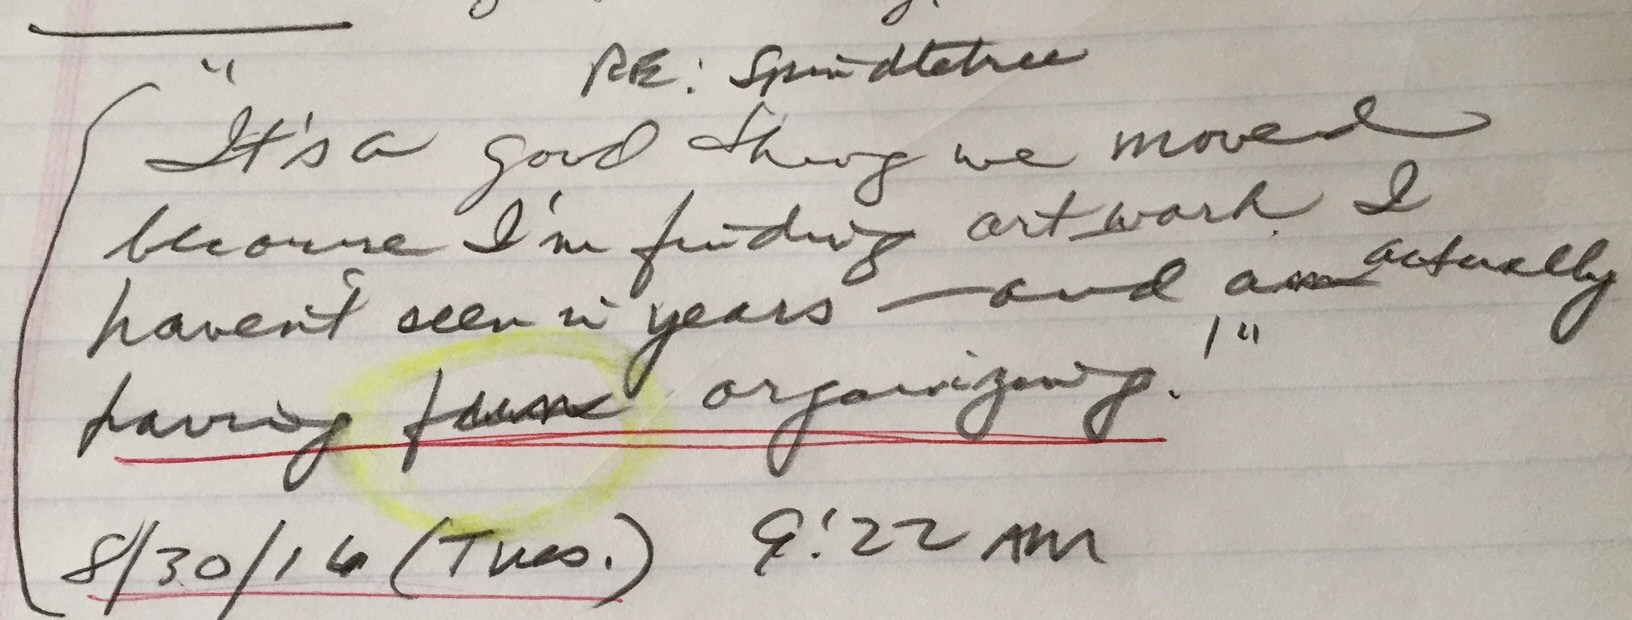 RE: Spindletree
"It's a good thing we moved
because I'm finding artwork I
haven't seen in years — and am actually
having fun organizing.!"
8/30/16 (Tues.) 9:22 AM